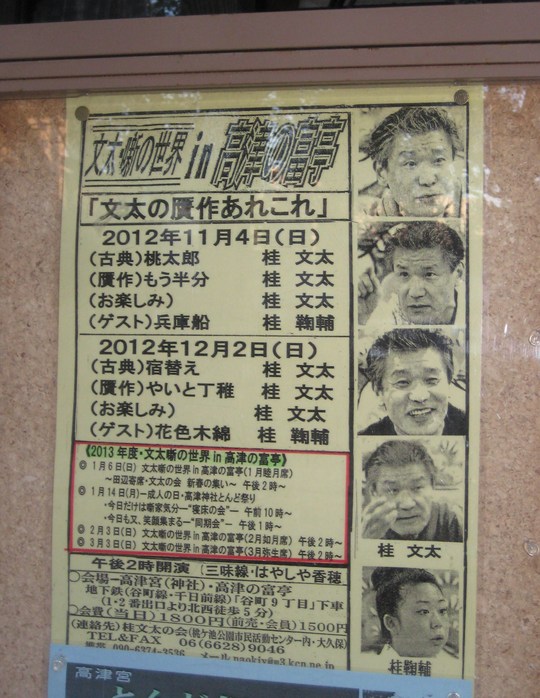 文太・噺の世界 in 高津の富亭
「文太の贋作あれこれ」
2012年11月4日(日)
(古典)桃太郎 桂 文太
(贋作)もう半分 桂 文太
(お楽しみ) 桂 文太
(ゲスト)兵庫船 桂 鞠輔
2012年12月2日(日)
(古典)宿替え 桂 文太
(贋作)やいと丁稚 桂 文太
(お楽しみ) 桂 文太
(ゲスト)花色木綿 桂 鞠輔
《2013年度・文太噺の世界in高津の富亭》
◎ 1月6日(日) 文太噺の世界in高津の富亭(1月睦月席)
～田辺寄席・文太の会 新春の集い～ 午後2時～
◎ 1月14日(月)―成人の日・高津神社とんど祭り
・今日だけは噺家気分―"寝床の会"― 午前10時～
・今日も又、笑顔集まる―"同期会"― 午後1時～
◎ 2月3日(日) 文太噺の世界in高津の富亭(2月如月席) 午後2時～
◎ 3月3日(日) 文太噺の世界in高津の富亭(3月弥生席) 午後2時～
午後2時開演 [三味線・はやしや香穂
○会場―高津宮(神社)・高津の富亭
地下鉄(谷町線・千日前線)「谷町9丁目」下車
(1・2番出口より北西徒歩5分)
○会費(当日)1800円(前売・会員)1500円
(連絡先)桂文太の会(桃ケ池公園市民活動センター内・大久保)
TEL&FAX 06(6628)9046
090-6374-3536
桂 文太
桂鞠輔
高津宮